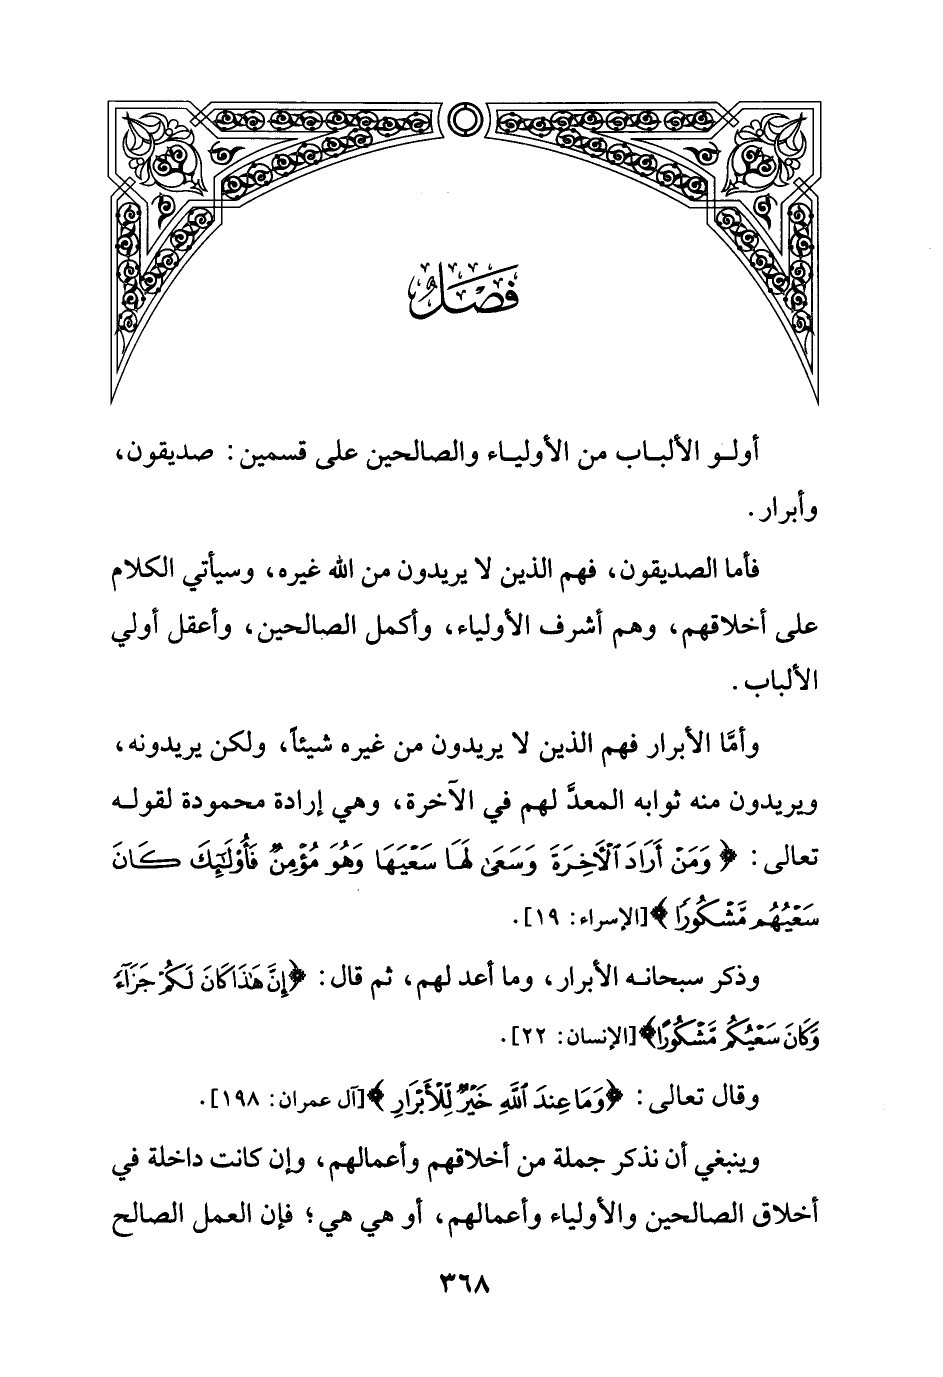 فَصْلٌ
أولو الألباب من الأولياء والصالحين على قسمين: صديقون،
وأبرار.
فأما الصديقون، فهم الذين لا يريدون من الله غيره، وسيأتي الكلام
على أخلاقهم، وهم أشرف الأولياء، وأكمل الصالحين، وأعقل أولي
الألباب.
وأمَّا الأبرار فهم الذين لا يريدون من غيره شيئاً، ولكن يريدونه،
ويريدون منه ثوابه المعدَّ لهم في الآخرة، وهي إرادة محمودة لقوله
تعالى: ﴿وَمَنْ أَرَادَ ٱلْأَخِرَةَ وَسَعَىٰ لَهَا سَعْيَهَا وَهُوَ مُؤْمِنٌ فَأُوْلَٰٓئِكَ كَانَ
سَعْيُهُم مَّشْكُورًا﴾[الإسراء: ١٩].
وذكر سبحانه الأبرار، وما أعد لهم، ثم قال: ﴿إِنَّ هَٰذَا كَانَ لَكُمْ جَزَآءً
وَكَانَ سَعْيُكُم مَّشْكُورًا﴾[الإنسان: ٢٢].
وقال تعالى: ﴿وَمَا عِندَ ٱللَّهِ خَيْرٌ لِّلْأَبْرَارِ﴾[آل عمران: ١٩٨].
وينبغي أن نذكر جملة من أخلاقهم وأعمالهم، وإن كانت داخلة في
أخلاق الصالحين والأولياء وأعمالهم، أو هي هي؛ فإن العمل الصالح
٣٦٨